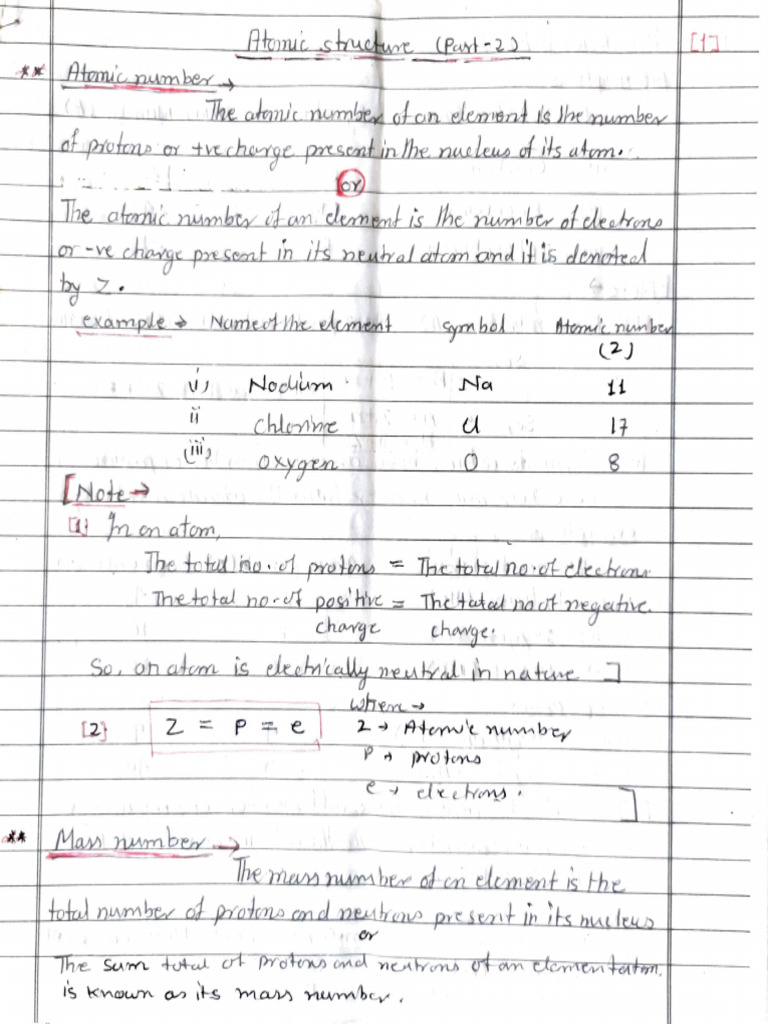 Atomic structure (Part-2) [1]
** Atomic number →
The atomic number of an element is the number
of protons or +ve charge present in the nucleus of its atom.
or
The atomic number of an element is the number of electrons
or -ve charge present in its neutral atom and it is denoted
by Z.
example → Name of the element symbol Atomic number
(Z)
i) Nodium Na 11
ii chlorine Cl 17
(iii) oxygen O 8
[Note →
[1] In an atom,
The total no. of protons = The total no. of electrons
The total no. of positive = The total no of negative.
charge charge.
So, an atom is electrically neutral in nature ]
where →
[2] Z = P = e Z → Atomic number
P → protons
e → electrons. ]
** Mass number →
The mass number of an element is the
total number of protons and neutrons present in its nucleus
or
The sum total of protons and neutrons of an element atom.
is known as its mass number.